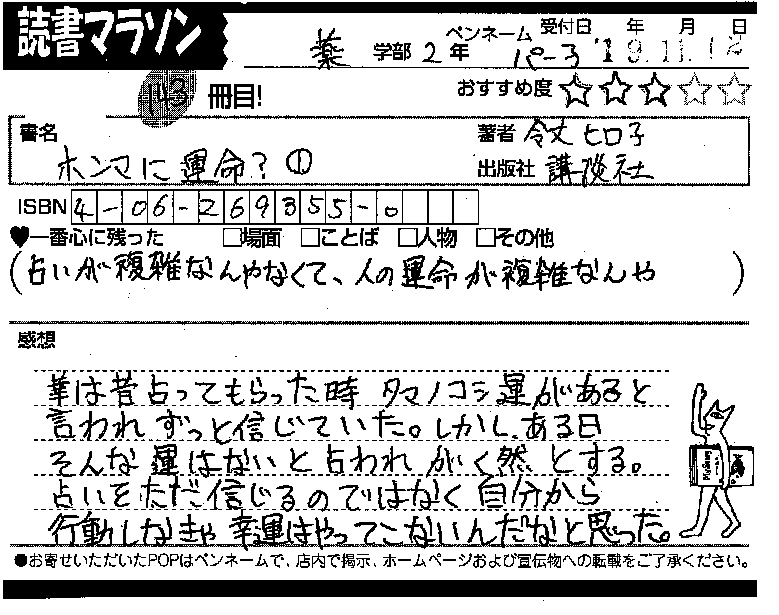 読書マラソン
薬 学部 2 年 ペンネーム パーコ 受付日 '19年 11月 12日
143 冊目!
おすすめ度 ★★★☆☆
書名 ホンマに運命?①
著者 令丈ヒロ子
出版社 講談社
ISBN 4-06-269355-0
♥一番心に残った □場面 □ことば □人物 □その他
(占いが複雑なんやなくて、人の運命が複雑なんや)
感想
華は昔占ってもらった時 タマノコシ運があると
言われずっと信じていた。しかし、ある日
そんな運はないと占われがく然とする。
占いをただ信じるのではなく自分から
行動しなきゃ幸運はやってこないんだなと思った。
●お寄せいただいたPOPはペンネームで、店内で掲示、ホームページおよび宣伝物への転載をご了承ください。